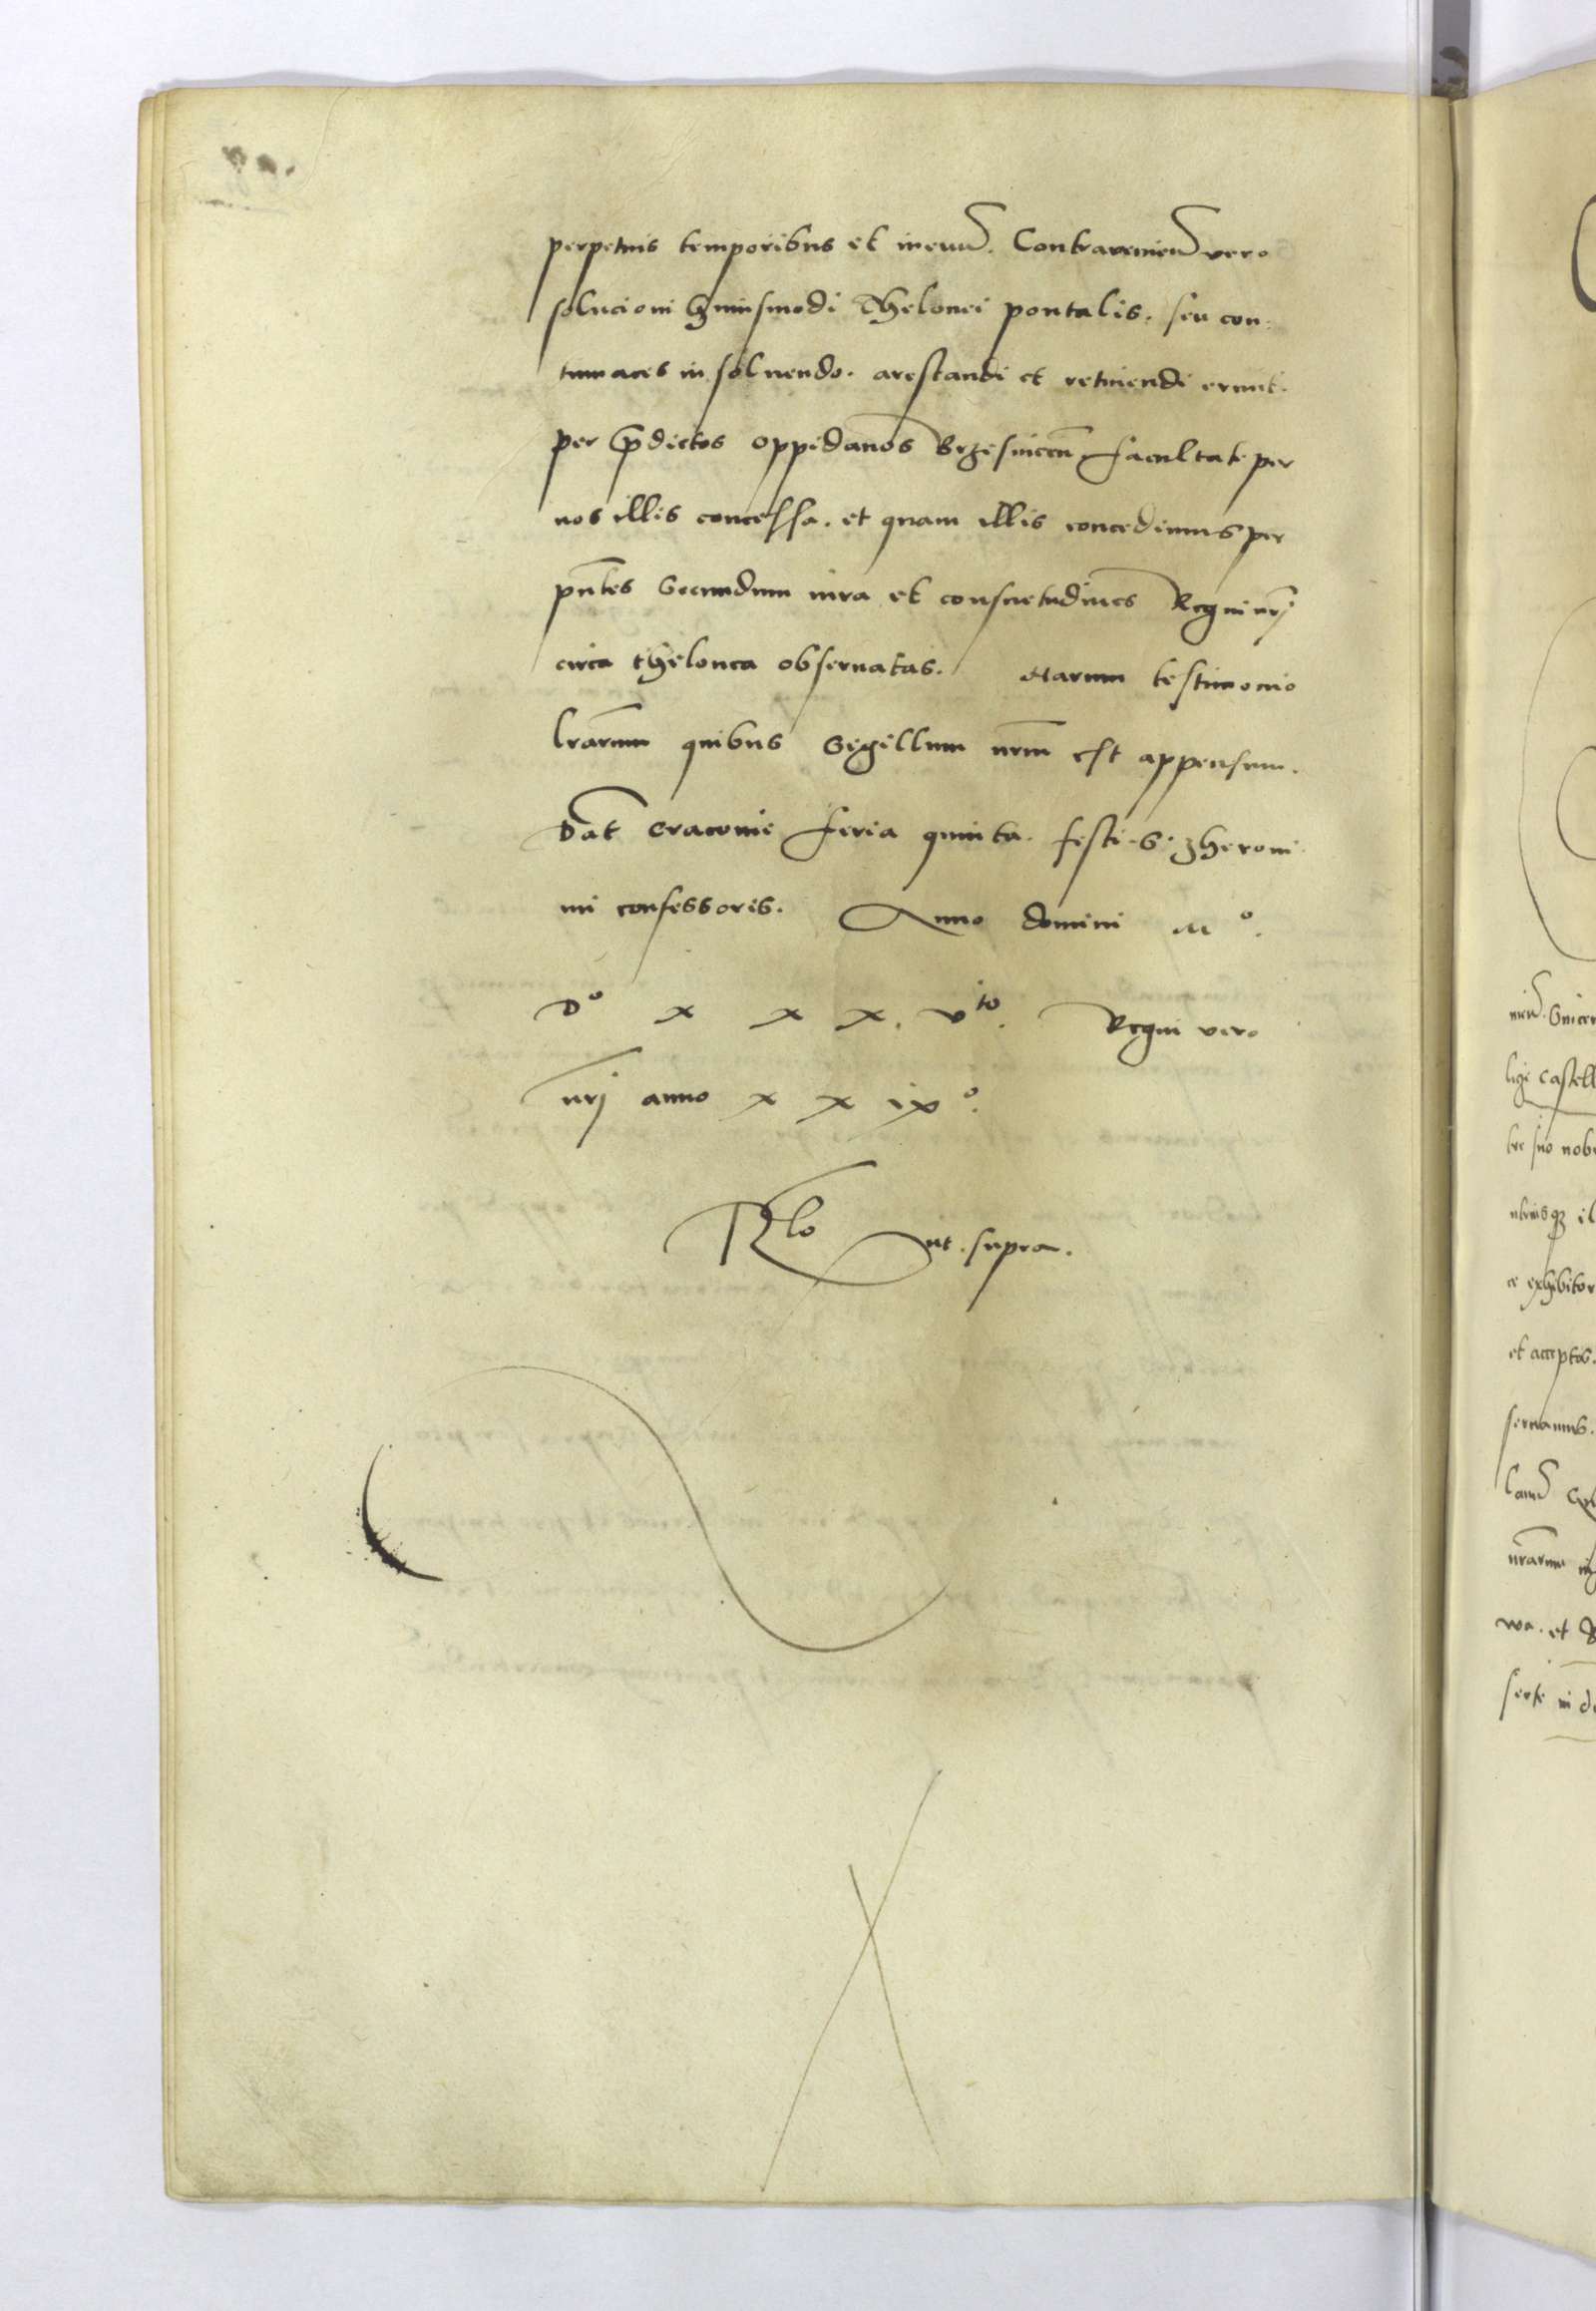 perpetuis temporibus et in evu͂. Contravenien͂ vero
solucioni huiusmodi Thelonei pontalis. seu con:
tumaces in solvendo. arestandi et retinendi erunt.
per p̄dictos oppidanos facultate per
nos illis concessa. et quam illis concedimus per
pn̄tes Secundum iura et consuetudines Regni nrj̄
circa thelonea observatas. Harum testimonio
lrārum quibus Sigillum nrm̄ est appensum.
Dat̄ Cracovie feria quinta. festi. S. Jheroni
mi confessoris. Anno domini Mº.
Dº x x x. vto. Regni vero
nrj̄ anno x x ixº.
Rlo ut. supra.
castell
tre suo
ce exhibitor
et acceptos.
servamus.
wa. et